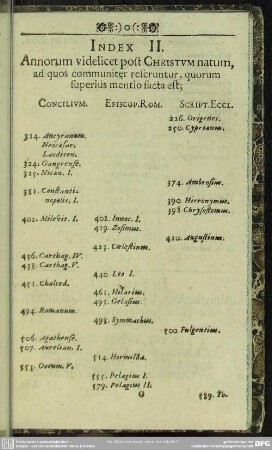 :) o (:
INDEX II.
Annorum videlicet post CHRISTVM natum,
ad quos communiter referuntur, quorum
superius mentio facta est;
CONCILIVM. EPISCOP. ROM. SCRIPT. ECCL.
226. Origenes.
250. Cyprianus.
314. Ancyranum.
Neocæsar.
Laodicen.
324. Gangrense.
325. Nican. I.
374. Ambrosius.
381. Constanti-
nopolit. I.
390. Hieronymus.
398. Chrysostomus.
402. Milevit. I. 402. Innoc. I.
419. Zosimus.
420. Augustinus.
423. Cœlestinus.
436. Carthag. IV.
438. Carthag. V.
440. Leo I.
451. Chalced.
461. Hilarius.
492. Gelasius.
494. Romanum.
498. Symmachus.
500. Fulgentius.
506. Agathense.
507. Aurelian. I.
514. Hormisda.
553. Oecum. V.
555. Pelagius I.
579. Pelagius II.
G 589. To.